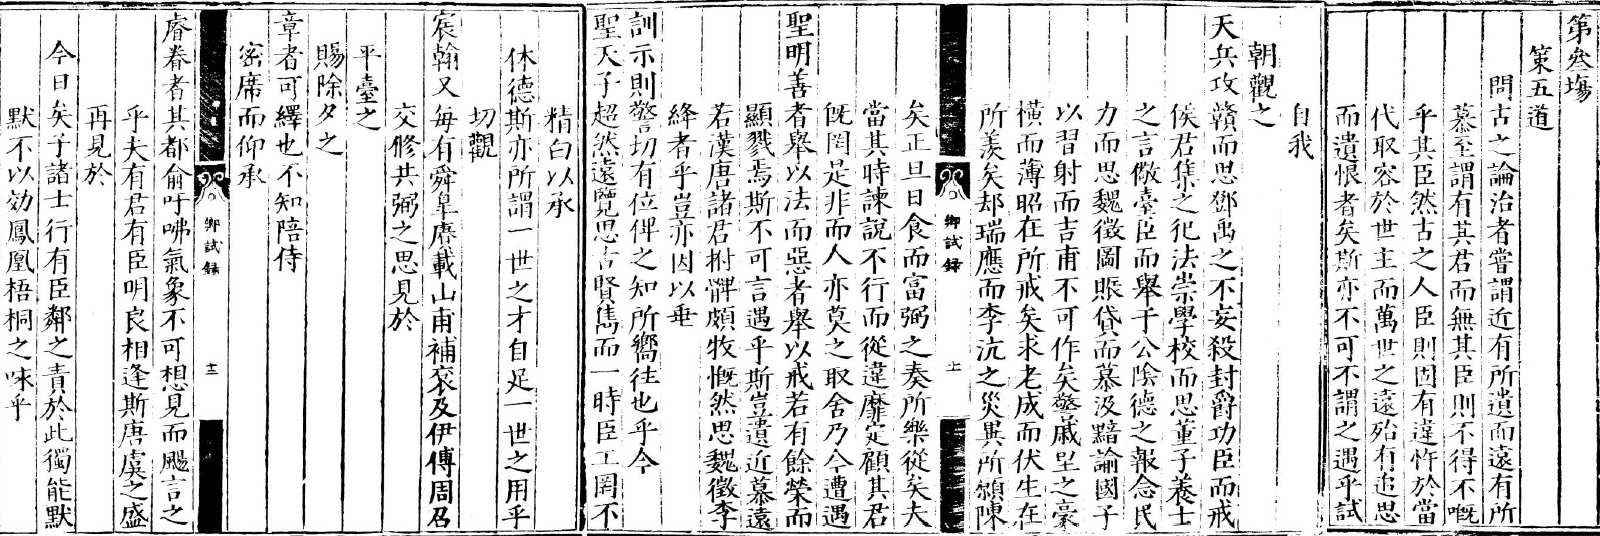 第叁塲
第五道
問古之論治者嘗謂近有所遺而遠有所
慕至謂有其君而無其臣則不得不慨
乎其臣然古之人臣則固有違忤於當
代取容於世主而萬世之遠殆有追思
而遺恨者矣斯亦不可不謂之遇乎試
自我
朝觀之
天兵攻贛而思鄧禹之不妄殺封爵功臣而戒
侯君集之犯法崇學校而思董子養士
之言儆臺臣而舉于公陰德之報念民
力而思魏徵圖賑貸而慕汲黯諭國子
以習射而吉甫不可作矣警戚里之豪
橫而薄昭在所戒矣求老成而伏生在
所羨矣却瑞應而李沆之災異所願陳
矣正旦日食而富弼之奏所樂從矣夫
當其時諫說不行而從違靡定顧其君
旣罔是非而人亦莫之取舍乃今遭遇
聖明善者舉以法而惡者舉以戒若有餘榮而
顯戮焉斯不可言遇乎斯豈遺近慕遠
若漢唐諸君拊髀頗牧慨然思魏徵李
絳者乎豈亦因以垂
訓示則警切有位俾之知所嚮往也乎今
聖天子超然遠覽思古賢雋而一時臣工罔不
精白以承
休德斯亦所謂一世之才自足一世之用乎
切觀
宸翰又每有舜臯賡載山甫補衮及伊傅周召
交修共弼之思見於
平臺之
賜除夕之
章者可繹也不知陪侍
密席而仰承
睿眷者其都俞吁咈氣象不可想見而颺言之
乎夫有君有臣明良相逢斯唐虞之盛
再見於
今日矣子諸士行有臣鄰之責於此獨能默
默不以効鳳凰梧桐之咏乎
鄉試錄
十一
鄉試錄
十二